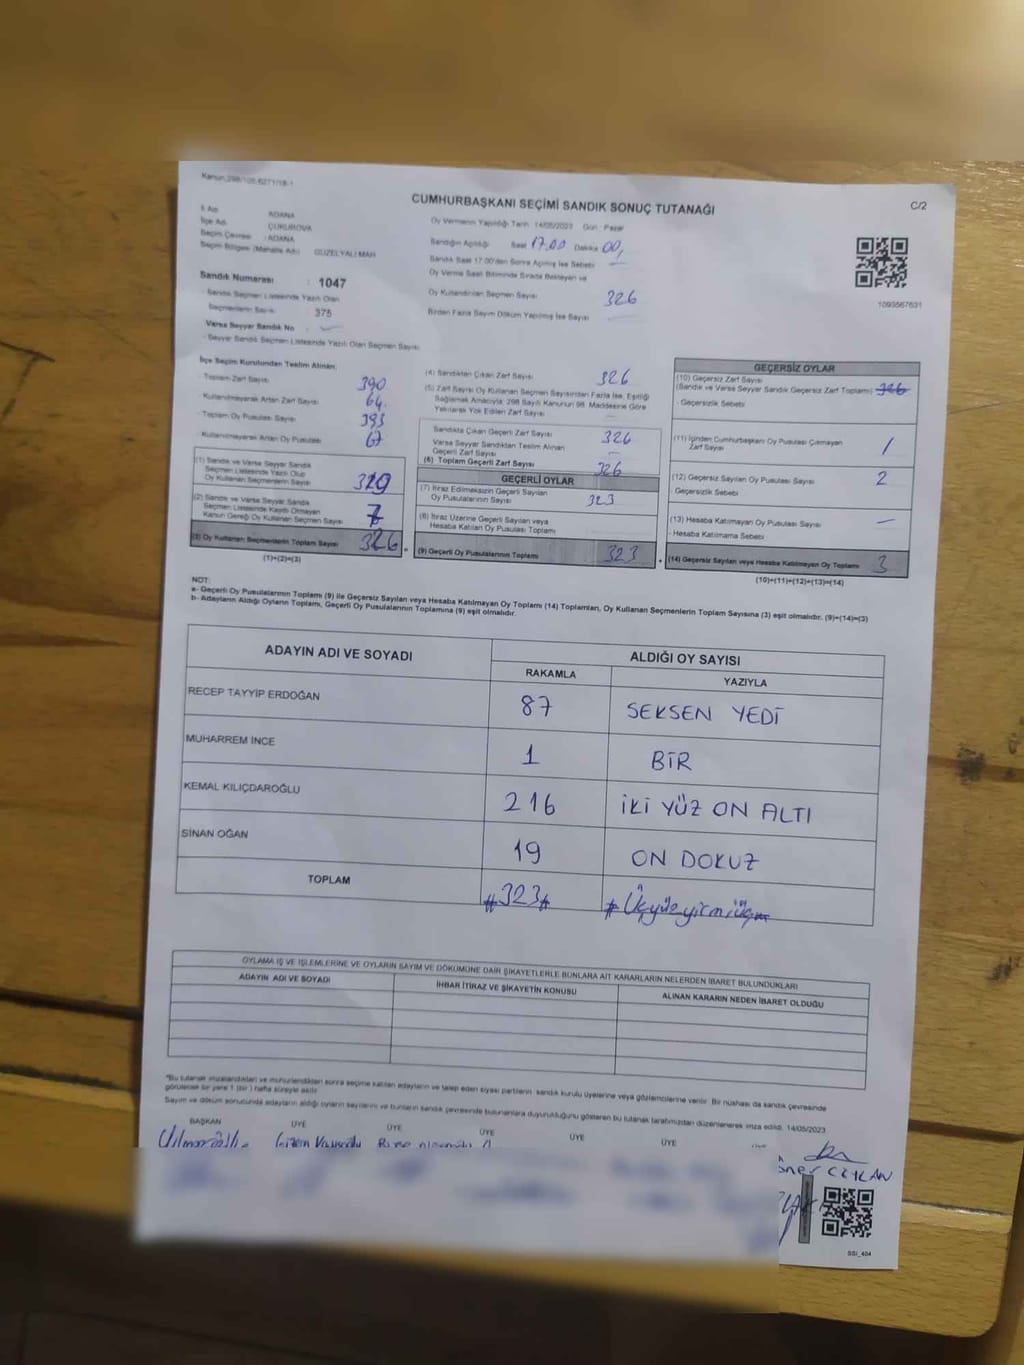 Kanun:298/105-6271/18-1
CUMHURBAŞKANI SEÇİMİ SANDIK SONUÇ TUTANAĞI
C/2
İl Adı : ADANA
İlçe Adı : ÇUKUROVA
Seçim Çevresi : ADANA
Seçim Bölgesi (Mahalle Adı) : GÜZELYALI MAH
Sandık Numarası : 1047
- Sandık Seçmen Listesinde Yazılı Olan
Seçmenlerin Sayısı : 375
Varsa Seyyar Sandık No
- Seyyar Sandık Seçmen Listesinde Yazılı Olan Seçmen Sayısı
Oy Vermenin Yapıldığı Tarih : 14/05/2023 Gün : Pazar
Sandığın Açıldığı Saat 17.00 Dakika 00,
Sandık Saat 17.00'den Sonra Açılmış İse Sebebi
Oy Verme Saati Bitiminde Sırada Bekleyen ve
Oy Kullandırılan Seçmen Sayısı 326
Birden Fazla Sayım Döküm Yapılmış İse Sayısı
1093567631
İlçe Seçim Kurulundan Teslim Alınan:
- Toplam Zarf Sayısı 390
- Kullanılmayarak Artan Zarf Sayısı 64
- Toplam Oy Pusulası Sayısı 393
- Kullanılmayarak Artan Oy Pusulası 67
(1) Sandık ve Varsa Seyyar Sandık
Seçmen Listesinde Yazılı Olup
Oy Kullanan Seçmenlerin Sayısı 319
(2) Sandık ve Varsa Seyyar Sandık
Seçmen Listesinde Kayıtlı Olmayan
Kanun Gereği Oy Kullanan Seçmen Sayısı 7
(3) Oy Kullanan Seçmenlerin Toplam Sayısı 326
(1)+(2)=(3)
(4) Sandıktan Çıkan Zarf Sayısı 326
(5) Zarf Sayısı Oy Kullanan Seçmen Sayısından Fazla İse, Eşitliği
Sağlamak Amacıyla; 298 Sayılı Kanunun 98. Maddesine Göre
Yakılarak Yok Edilen Zarf Sayısı
Sandıkta Çıkan Geçerli Zarf Sayısı 326
Varsa Seyyar Sandıktan Teslim Alınan
Geçerli Zarf Sayısı
(6) Toplam Geçerli Zarf Sayısı 326
GEÇERLİ OYLAR
(7) İtiraz Edilmeksizin Geçerli Sayılan
Oy Pusulalarının Sayısı 323
(8) İtiraz Üzerine Geçerli Sayılan veya
Hesaba Katılan Oy Pusulası Toplamı
(9) Geçerli Oy Pusulalarının Toplamı 323
GEÇERSİZ OYLAR
(10) Geçersiz Zarf Sayısı
(Sandık ve Varsa Seyyar Sandık Geçersiz Zarf Toplamı) 326
- Geçersizlik Sebebi
(11) İçinden Cumhurbaşkanı Oy Pusulası Çıkmayan
Zarf Sayısı 1
(12) Geçersiz Sayılan Oy Pusulası Sayısı 2
- Geçersizlik Sebebi
(13) Hesaba Katılmayan Oy Pusulası Sayısı —
- Hesaba Katılmama Sebebi
(14) Geçersiz Sayılan veya Hesaba Katılmayan Oy Toplamı 3
(10)+(11)+(12)+(13)=(14)
NOT:
a- Geçerli Oy Pusulalarının Toplamı (9) ile Geçersiz Sayılan veya Hesaba Katılmayan Oy Toplamı (14) Toplamları, Oy Kullanan Seçmenlerin Toplam Sayısına (3) eşit olmalıdır. (9)+(14)=(3)
b- Adayların Aldığı Oyların Toplamı, Geçerli Oy Pusulalarının Toplamına (9) eşit olmalıdır.
ADAYIN ADI VE SOYADI ALDIĞI OY SAYISI
RAKAMLA YAZIYLA
RECEP TAYYİP ERDOĞAN 87 SEKSEN YEDİ
MUHARREM İNCE 1 BİR
KEMAL KILIÇDAROĞLU 216 İKİ YÜZ ON ALTI
SİNAN OĞAN 19 ON DOKUZ
TOPLAM #323# # Üçyüzyirmiüç
OYLAMA İŞ VE İŞLEMLERİNE VE OYLARIN SAYIM VE DÖKÜMÜNE DAİR ŞİKAYETLERLE BUNLARA AİT KARARLARIN NELERDEN İBARET BULUNDUKLARI
ADAYININ ADI VE SOYADI İHBAR İTİRAZ VE ŞİKAYETİN KONUSU ALINAN KARARIN NEDEN İBARET OLDUĞU
*Bu tutanak imzalandıktan ve mühürlendikten sonra seçime katılan adayların ve talep eden siyasi partilerin sandık kurulu üyelerine veya gözlemcilerine verilir. Bir nüshası da sandık çevresinde
görülecek bir yere 1 (bir) hafta süreyle asılır.
Sayım ve döküm sonucunda adayların aldığı oyların sayılarını ve bunların sandık çevresinde bulunanlara duyurulduğunu gösteren bu tutanak tarafımızdan düzenlenerek imza edildi. 14/05/2023
BAŞKAN ÜYE ÜYE ÜYE ÜYE ÜYE
CEYLAN
SSİ_404